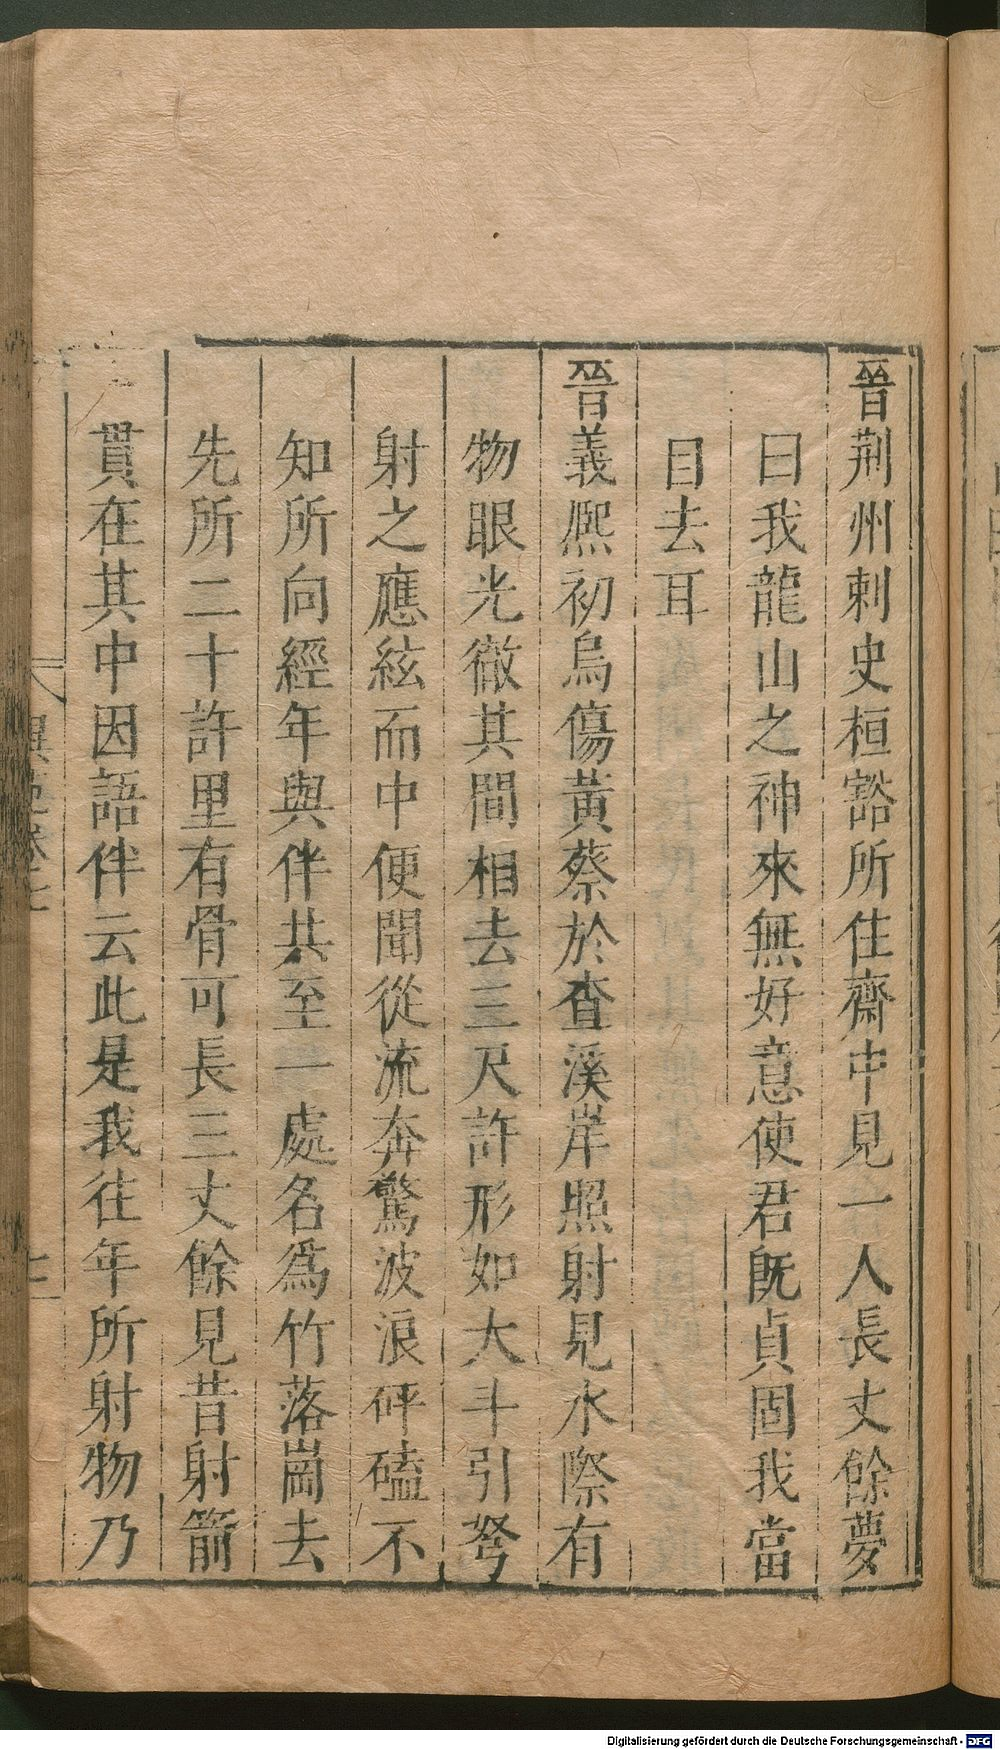 晉荆州刺史桓豁所住齋中見一人長丈餘夢
曰我龍山之神來無好意使君旣貞固我當
自去耳
晉義熈初烏傷黃蔡於査溪岸照射見水際有
物眼光徹其間相去三尺許形如大斗引弩
射之應絃而中便聞從流奔驚波浪砰磕不
知所向經年與伴共至一處名爲竹落崗去
先所二十許里有骨可長三丈餘見昔射箭
貫在其中因語伴云此是我往年所射物乃
Digitalisierung gefördert durch die Deutsche Forschungsgemeinschaft - DFG